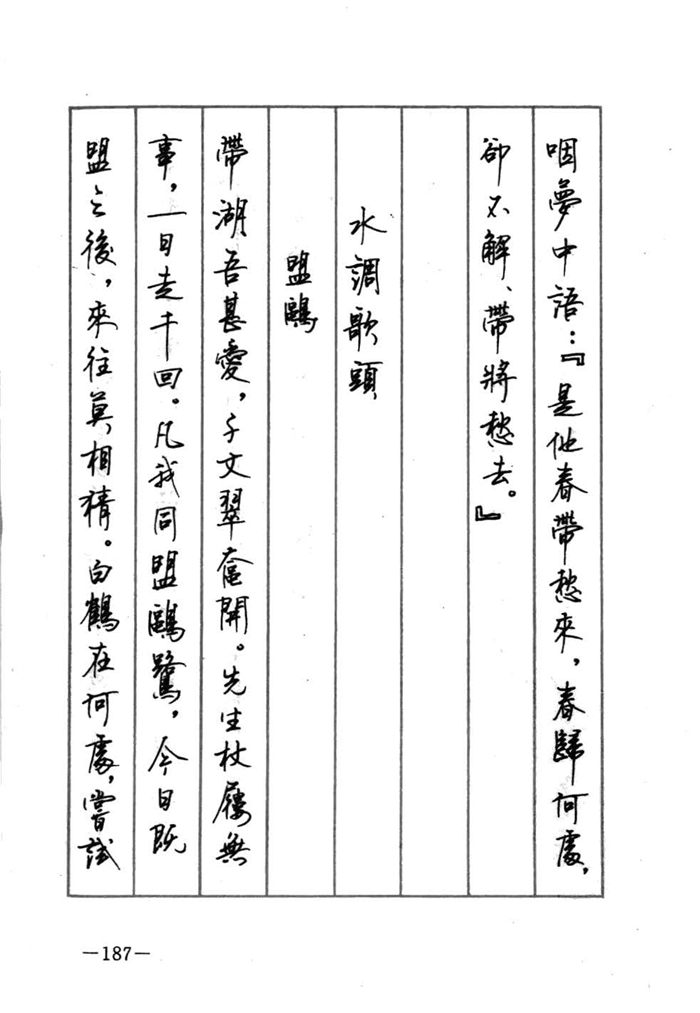 咽夢中語：『是他春帶愁來，春歸何處，
卻不解、帶將愁去。』
水調歌頭
盟鷗
帶湖吾甚愛，千丈翠奩開。先生杖屨無
事，一日走千回。凡我同盟鷗鷺，今日既
盟之後，來往莫相猜。白鶴在何處，嘗試
—187—